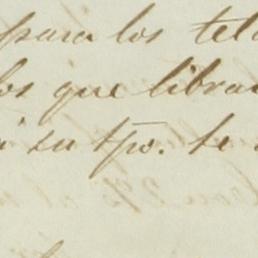 para los tela
los que libra
á su tpo. se